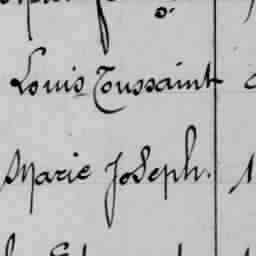 Louis Toussaint
Marie Joseph.